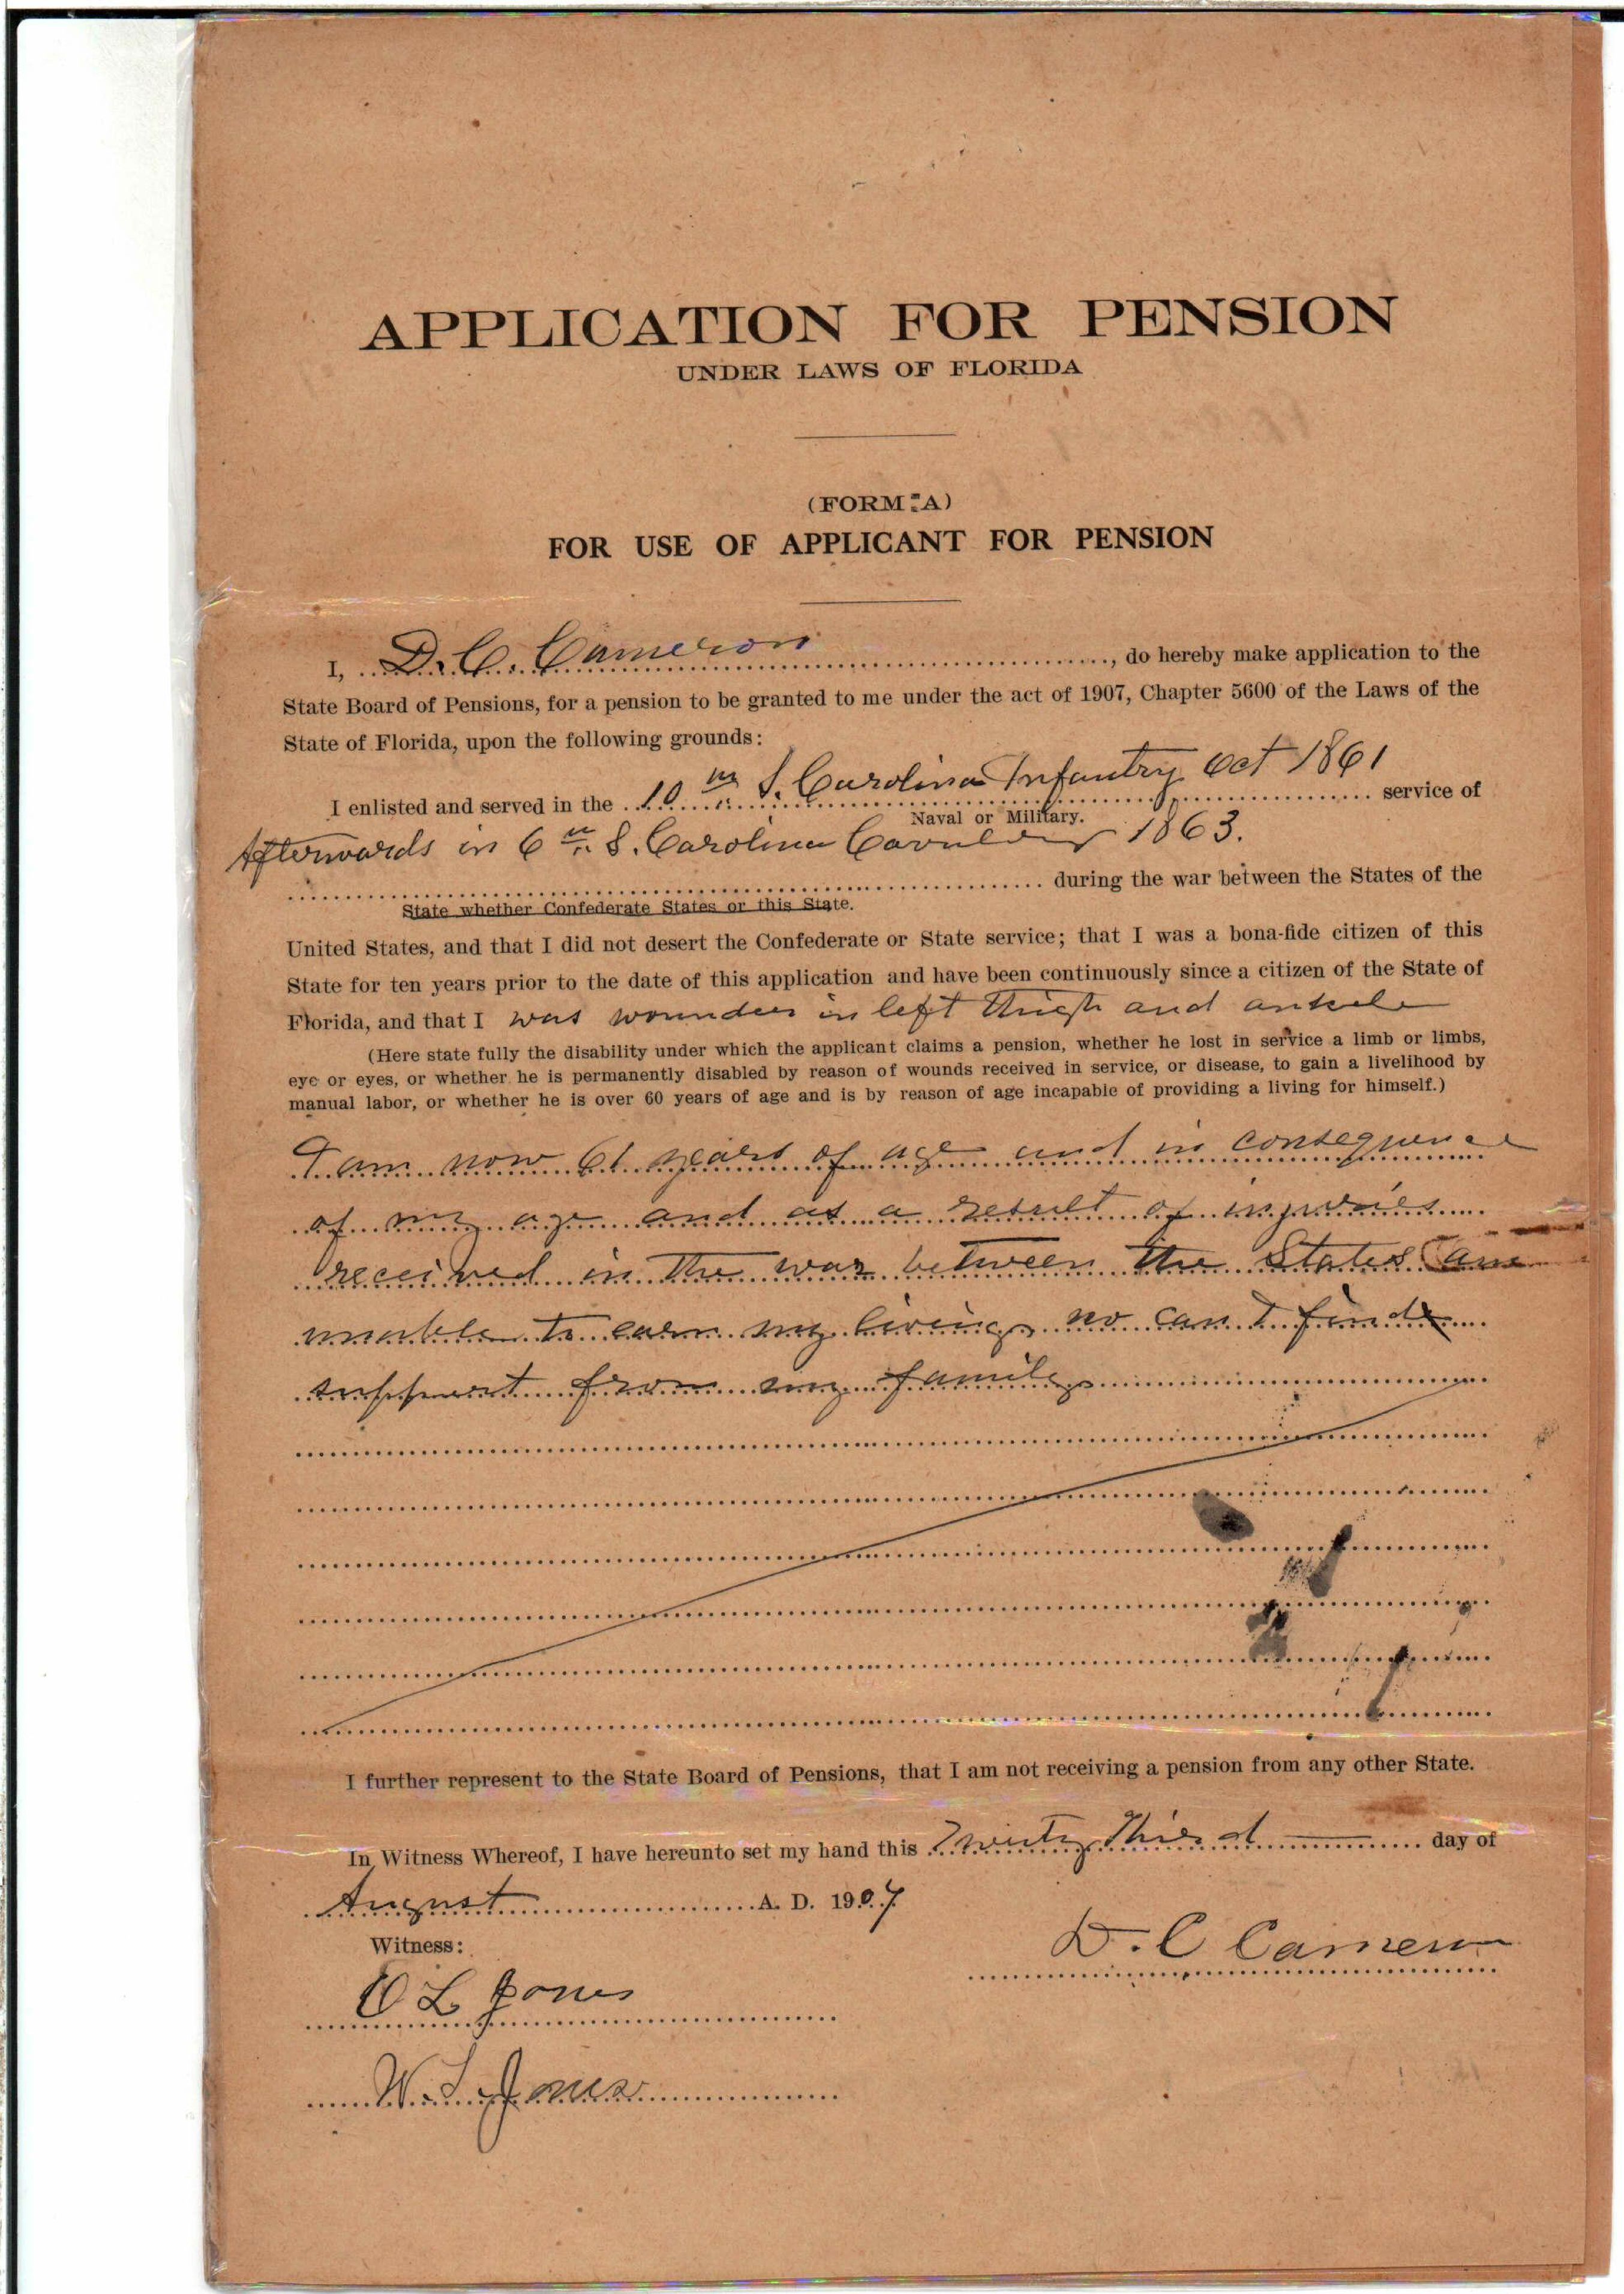 APPLICATION FOR PENSION
UNDER LAWS OF FLORIDA
(FORM A)
FOR USE OF APPLICANT FOR PENSION
I, D. C. Cameron, do hereby make application to the
State Board of Pensions, for a pension to be granted to me under the act of 1907, Chapter 5600 of the Laws of the
State of Florida, upon the following grounds:
I enlisted and served in the 10th S. Carolina Infantry Oct 1861 service of
Naval or Military.
Afterwards in 6th S. Carolina Cavalry 1863.
during the war between the States of the
State whether Confederate States or this State.
United States, and that I did not desert the Confederate or State service; that I was a bona-fide citizen of this
State for ten years prior to the date of this application and have been continuously since a citizen of the State of
Florida, and that I was wounded in left thigh and ankle
(Here state fully the disability under which the applicant claims a pension, whether he lost in service a limb or limbs,
eye or eyes, or whether he is permanently disabled by reason of wounds received in service, or disease, to gain a livelihood by
manual labor, or whether he is over 60 years of age and is by reason of age incapable of providing a living for himself.)
I am now 61 years of age and in consequence
of my age and as a result of injuries
received in the war between the States am
unable to earn my living, no can I find
support from my family
I further represent to the State Board of Pensions, that I am not receiving a pension from any other State.
In Witness Whereof, I have hereunto set my hand this Twenty Third day of
August A. D. 1907.
Witness:
D. C Cameron
O L Jones
W. L. Jones